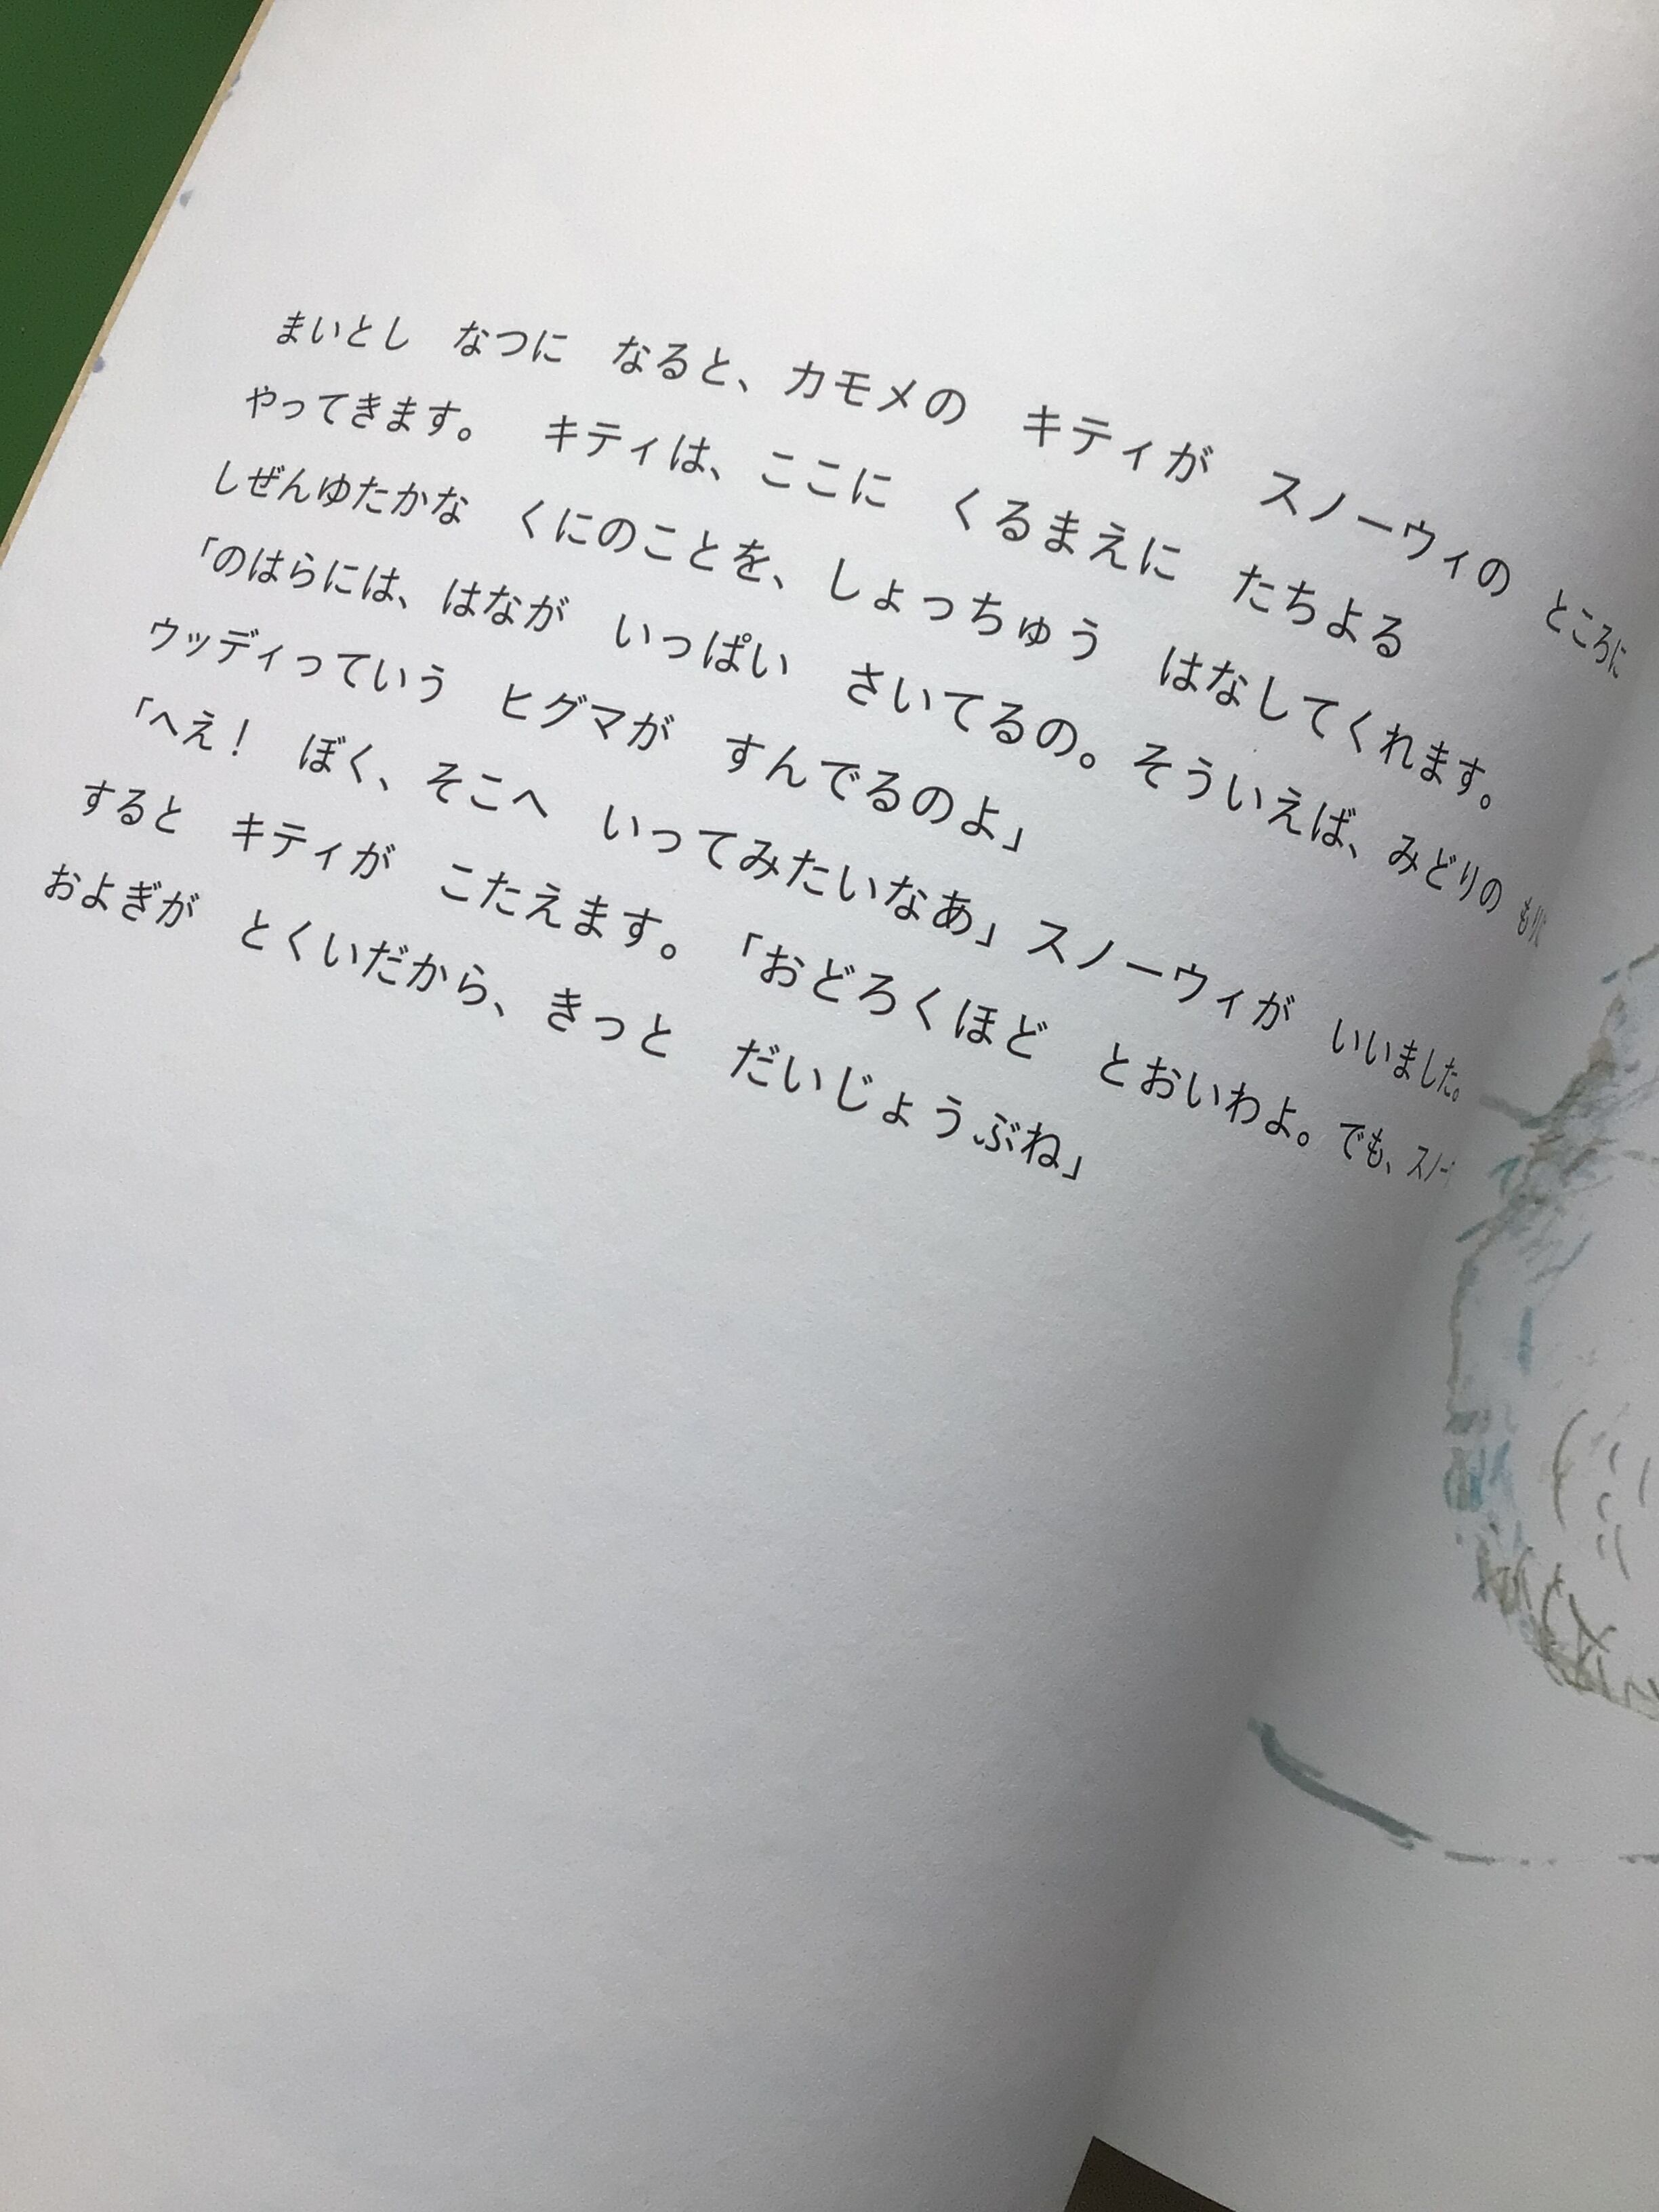 まいとし　なつに　なると、カモメの　キティが　スノーウィの　ところに
やってきます。　キティは、ここに　くるまえに　たちよる
しぜんゆたかな　くにのことを、しょっちゅう　はなしてくれます。
「のはらには、はなが　いっぱい　さいてるの。そういえば、みどりの　もりに
ウッディっていう　ヒグマが　すんでるのよ」
「へえ！　ぼく、そこへ　いってみたいなあ」スノーウィが　いいました。
すると　キティが　こたえます。「おどろくほど　とおいわよ。でも、
およぎが　とくいだから、きっと　だいじょうぶね」